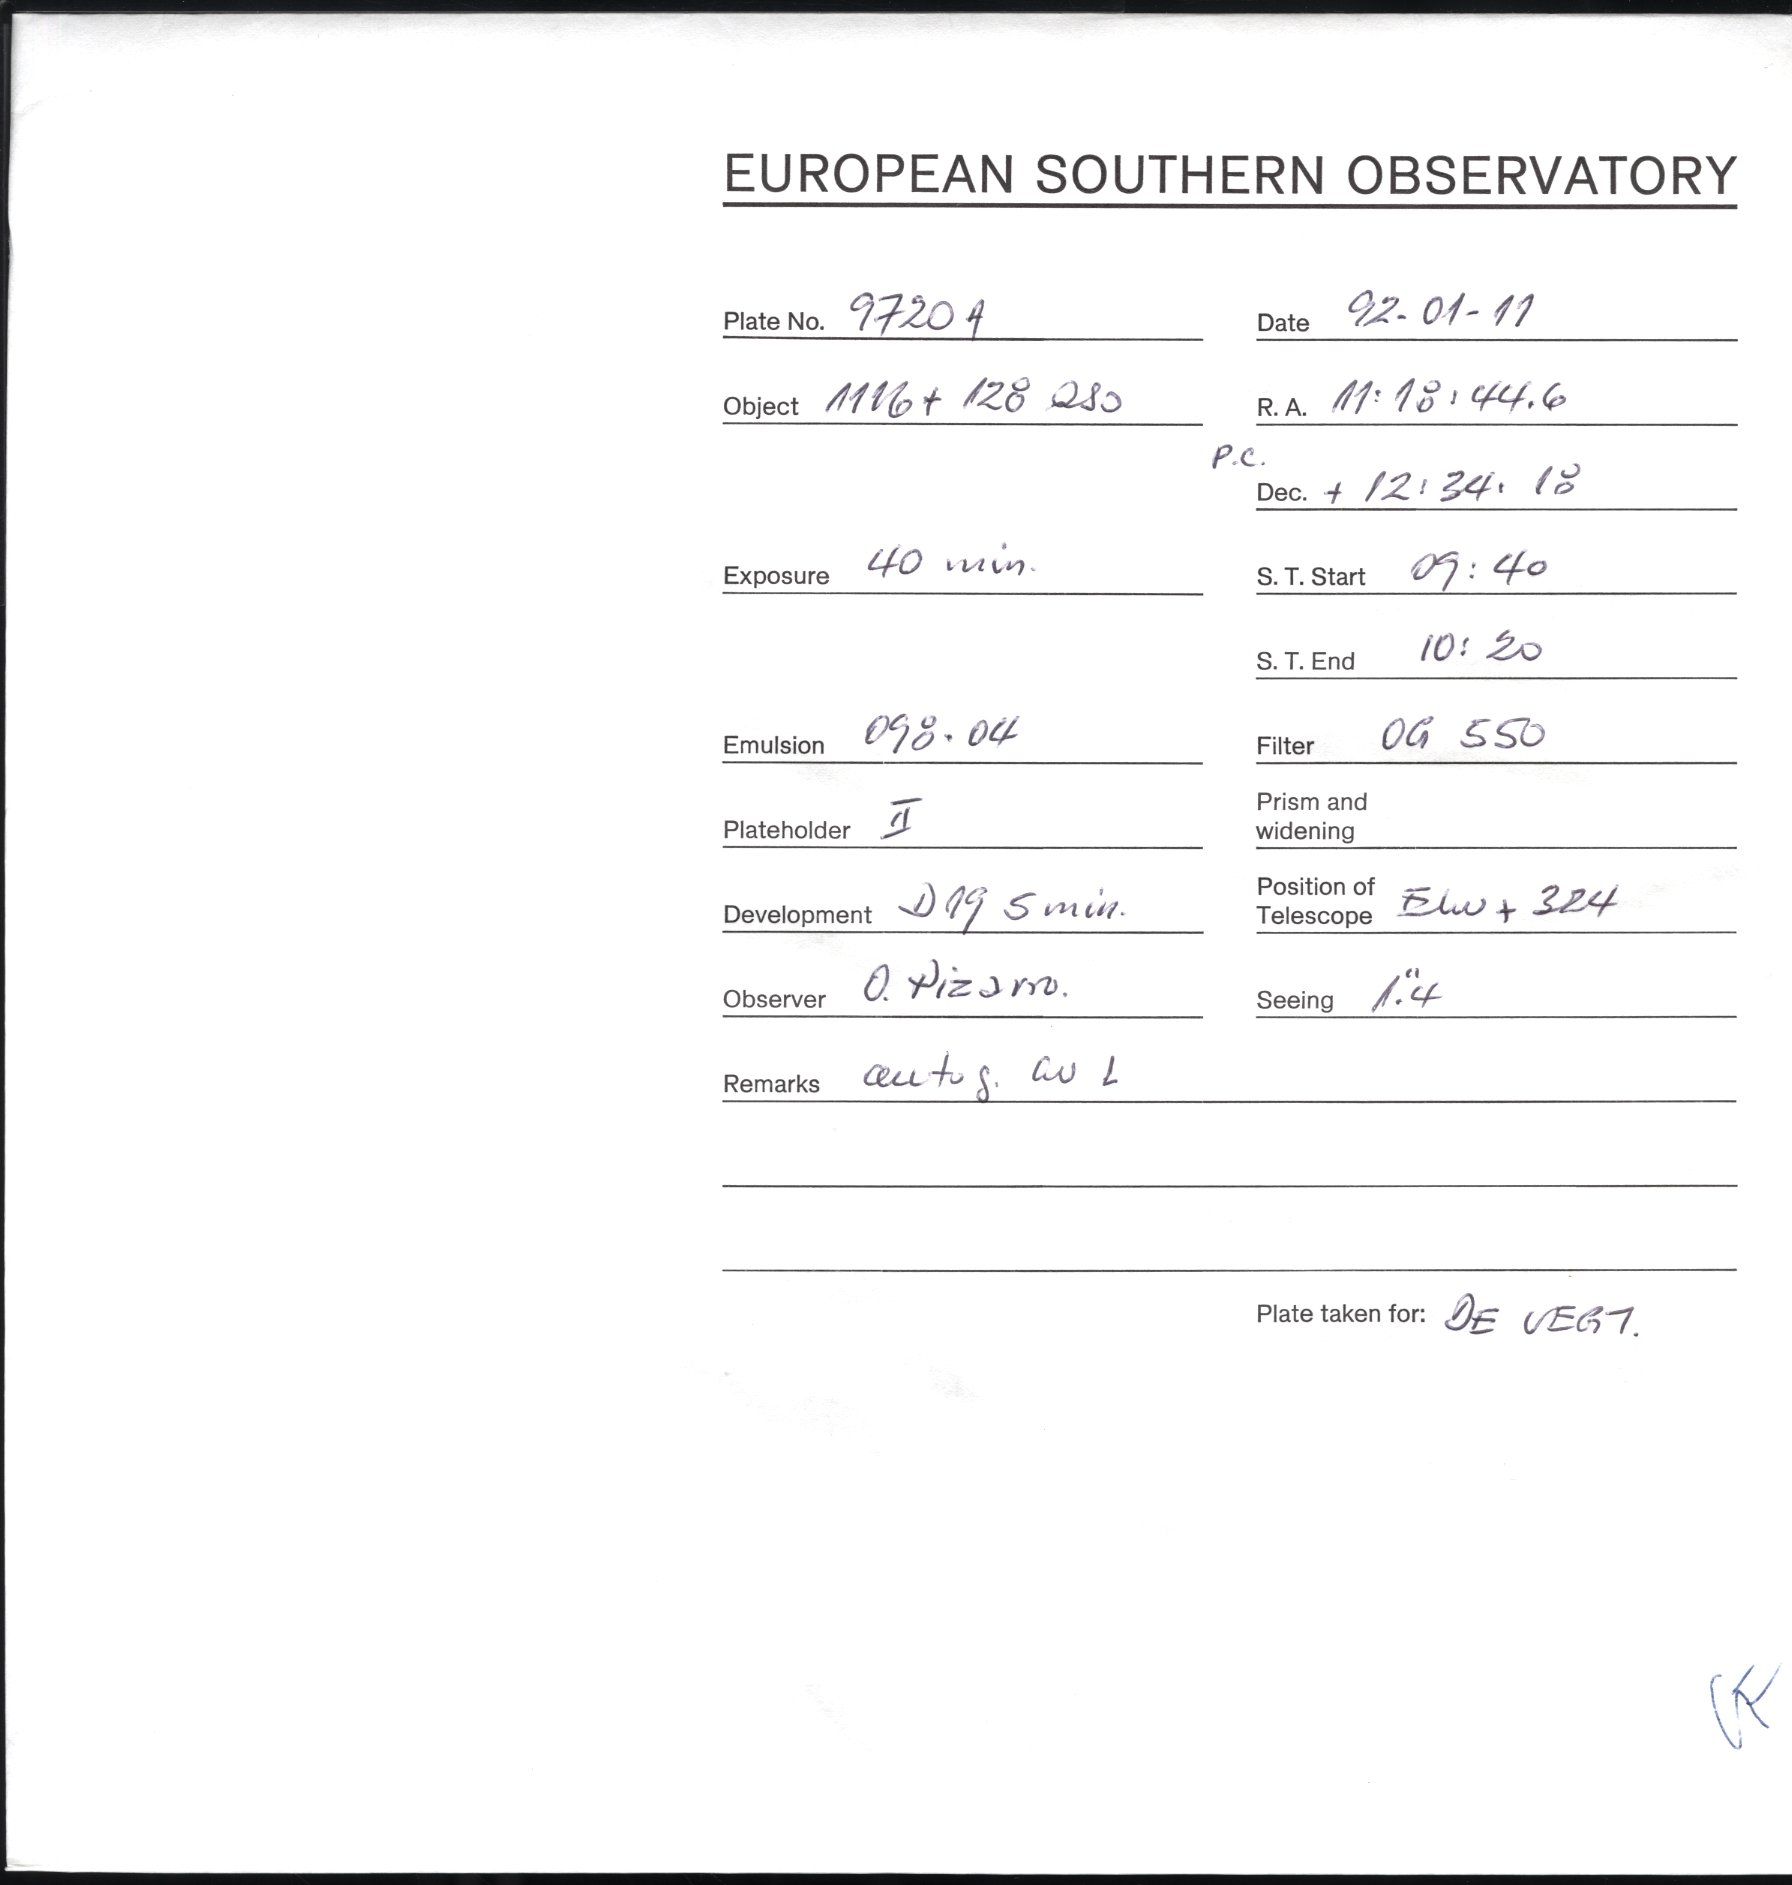 EUROPEAN SOUTHERN OBSERVATORY
Plate No. 9720 A Date 92-01-11
Object 1116+128 QSO R. A. 11:18:44.6
P.C.
Dec. + 12:34:18
Exposure 40 min. S. T. Start 09:40
S. T. End 10:20
Emulsion 098.04 Filter OG 550
Plateholder II Prism and
widening
Development D19 5 min. Position of
Telescope + 324
Observer O. Pizarro. Seeing 1."4
Remarks autog.
Plate taken for: DE VEGT.